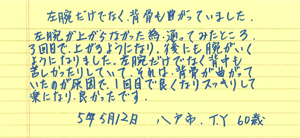 左腕だけでなく、背骨も曲がっていました。
左腕が上がらなかった為、通ってみたところ、
3回目で、上がるようになり、後にも腕がいく
ようになりました。左腕だけでなく背中も
苦しかったりしていて、それは、背骨が曲がって
いたのが原因で、1回目で良くなりスッキリして
楽になり、良かったです。
5年5月12日 八戸市、T.Y 60歳